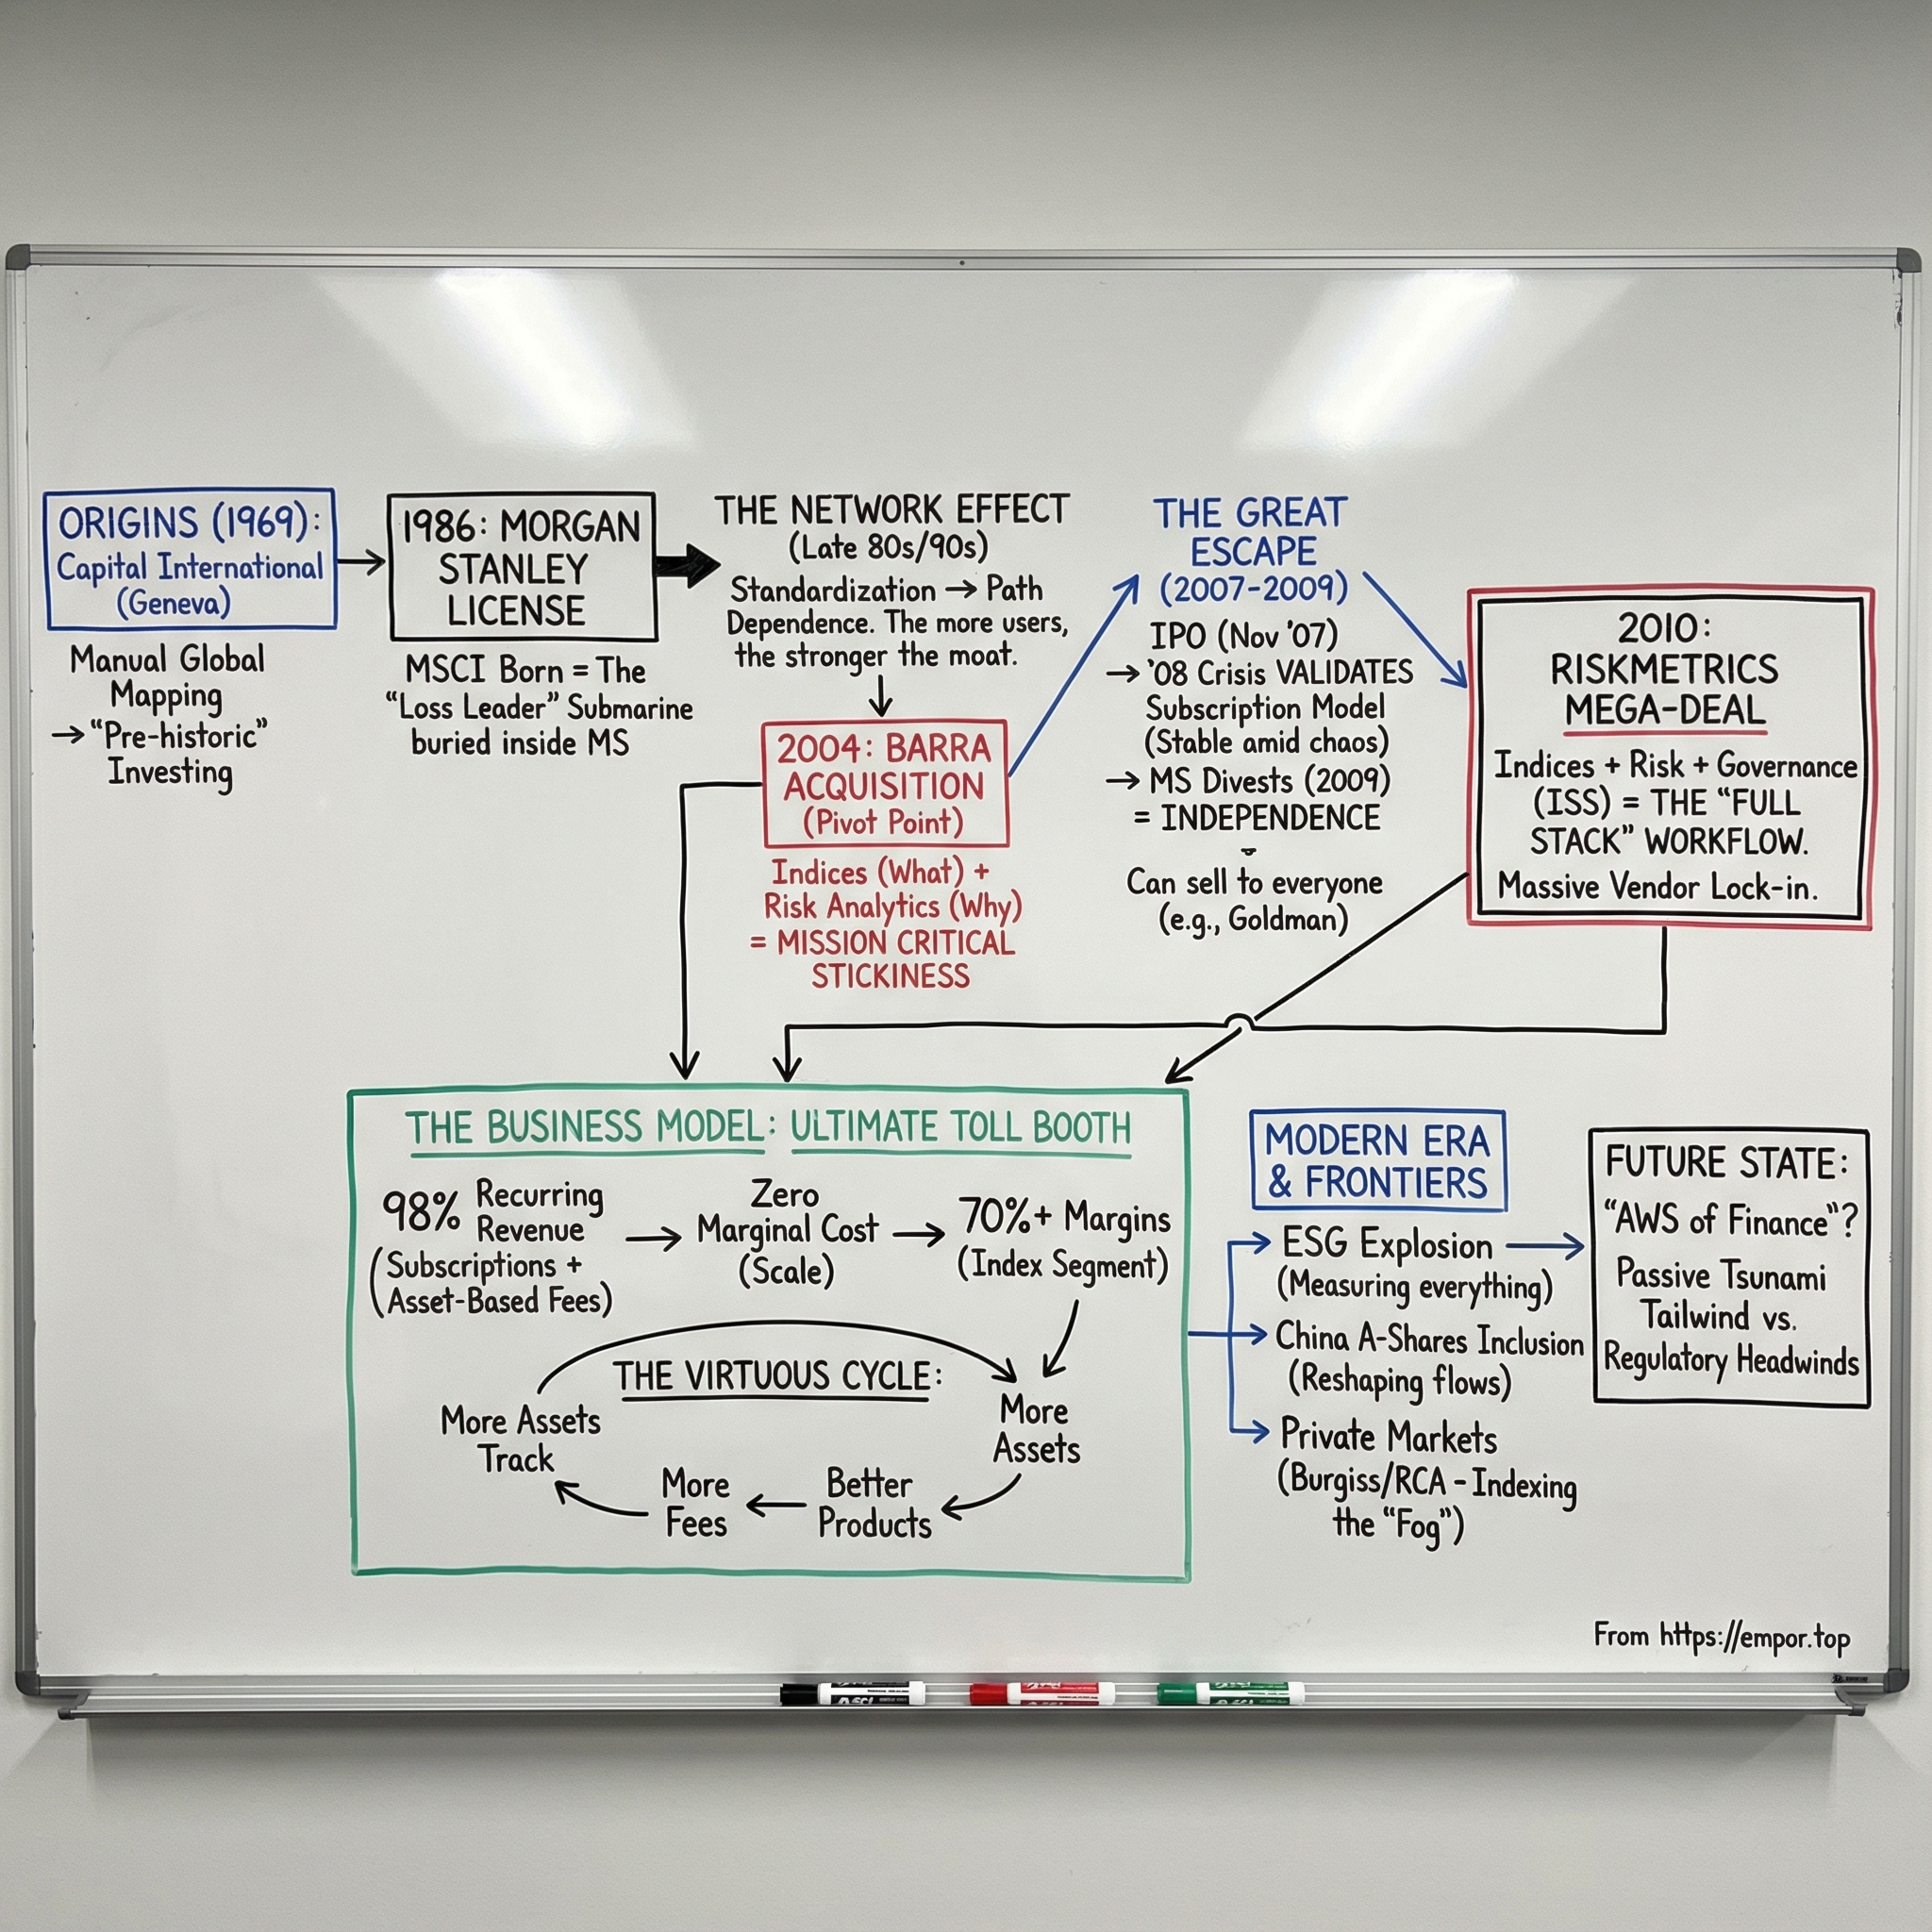 ORIGINS (1969):
Capital International
(Geneva)
Manual Global
Mapping
→ “Pre-historic”
Investing
1986: MORGAN
STANLEY
LICENSE
MSCI Born = The
“Loss Leader” Submarine
buried inside MS
THE NETWORK EFFECT
(Late 80s/90s)
Standardization → Path
Dependence. The more users,
the stronger the moat.
2004: BARRA
ACQUISITION
(Pivot Point)
Indices (What) +
Risk Analytics (Why)
= MISSION CRITICAL
STICKINESS
THE GREAT
ESCAPE
(2007-2009)
IPO (Nov '07)
→ '08 Crisis VALIDATES
Subscription Model
(Stable amid chaos)
→ MS Divests (2009)
= INDEPENDENCE
Can sell to everyone
(e.g., Goldman)
2010:
RISKMETRICS
MEGA-DEAL
Indices + Risk + Governance
(ISS) = THE “FULL
STACK” WORKFLOW.
Massive Vendor Lock-in.
THE BUSINESS MODEL: ULTIMATE TOLL BOOTH
98% Recurring
Revenue
(Subscriptions +
Asset-Based Fees)
→ Zero
Marginal Cost
(Scale)
→ 70%+ Margins
(Index Segment)
THE VIRTUOUS CYCLE:
More Assets
Track
More
Assets
Better
Products
More
Fees
MODERN ERA
& FRONTIERS
ESG Explosion
(Measuring everything)
China A-Shares Inclusion
(Reshaping flows)
Private Markets
(Burgiss/RCA - Indexing
the “Fog”)
FUTURE STATE:
“AWS of Finance”?
Passive Tsunami
Tailwind vs.
Regulatory Headwinds
From https://empor.top